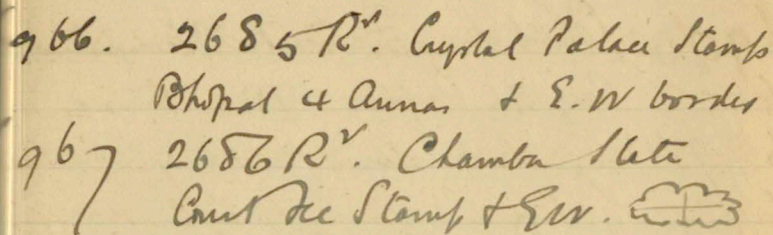 966. 2685 Rv. Crystal Palace Stamp
Bhopal 4 Annas & E.W border
967 2686 Rv. Chamba State
Court Fee Stamp & E.W.